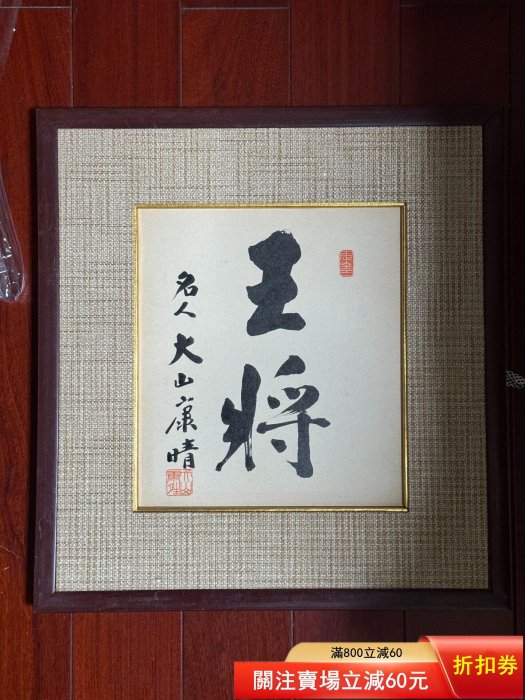 王将
名人 大山康晴
滿800立減60
關注賣場立減60元
折扣券